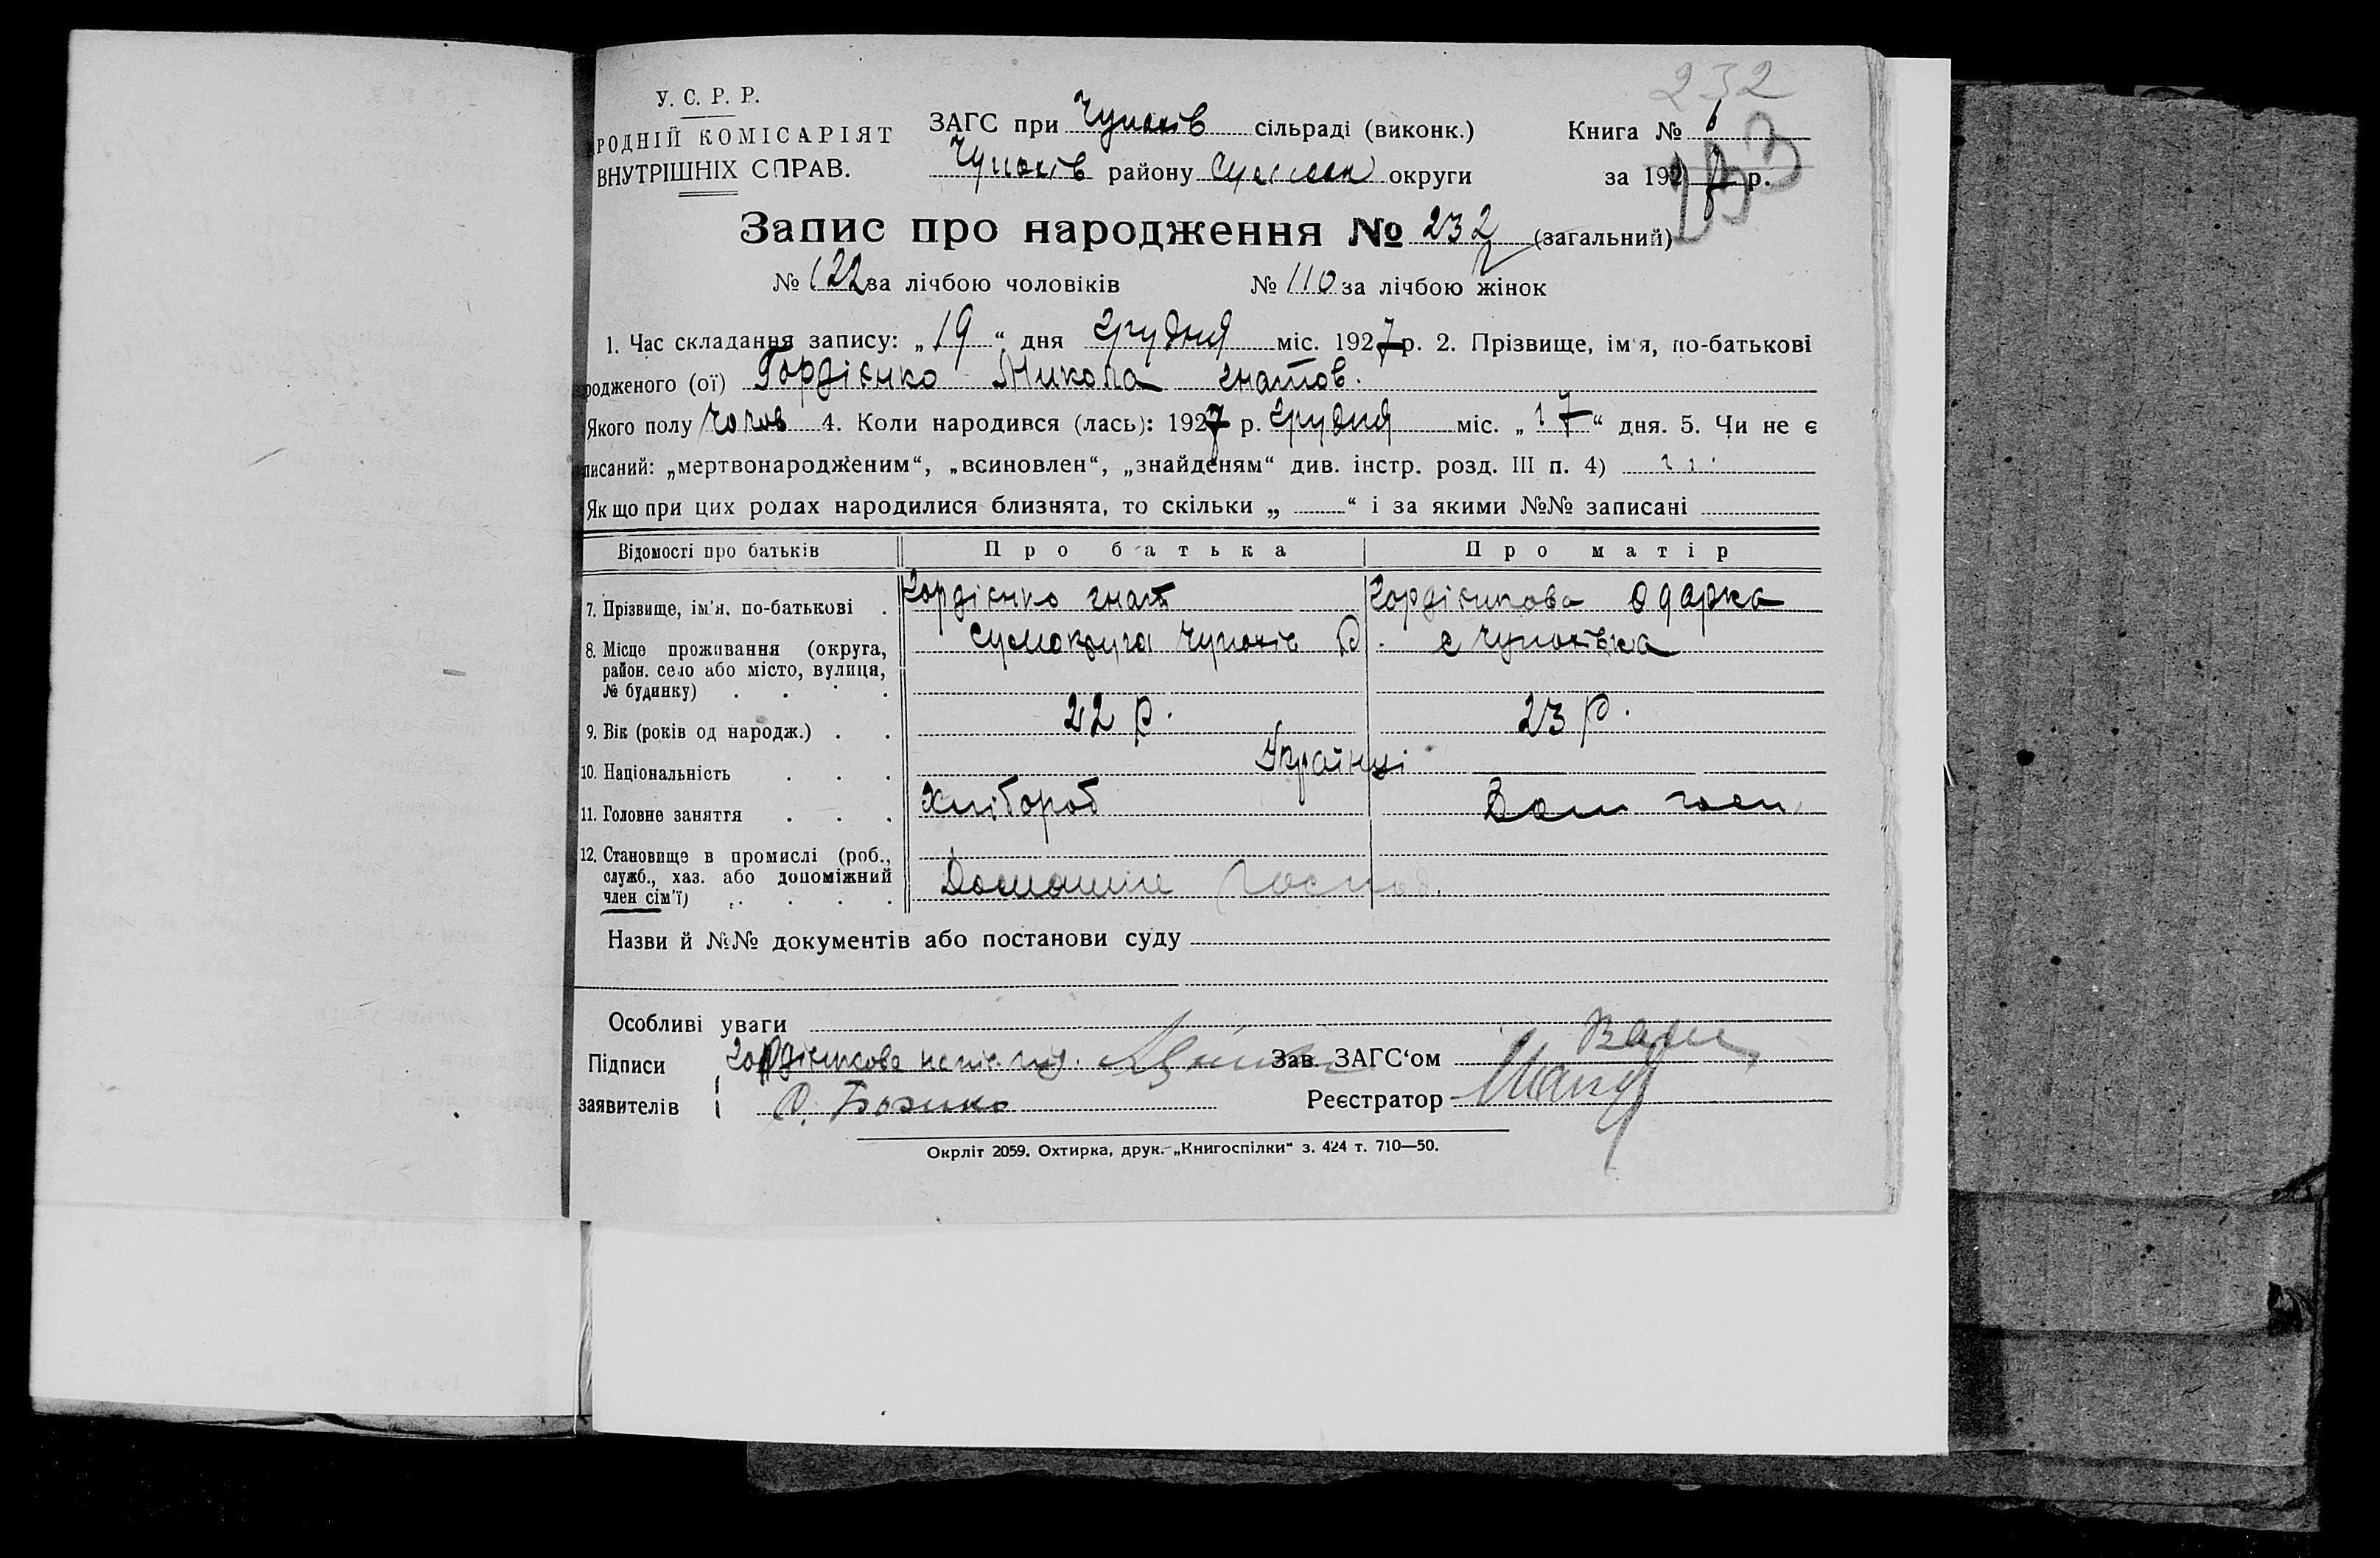 232
У. С. Р. Р.
РОДНІЙ КОМІСАРІЯТ
ВНУТРІШНІХ СПРАВ.
ЗАГС при Чупахів сільраді (виконк.)
Чупахів району округи
Книга №
за 1927 р.
233
Запис про народження № 232 (загальний)
№ 122 за лічбою чоловіків № 110 за лічбою жінок
1. Час складання запису: „ 19 “ дня грудня міс. 1927 р. 2. Прізвище, ім'я, по-батькові
родженого (ої) Гордієнко Микола гнатов.
Якого полу чолов 4. Коли народився (лась): 1927 р. грудня міс. „ 17 “ дня. 5. Чи не є
писаний: „мертвонародженим“, „всиновлен“, „знайденям“ див. інстр. розд. III п. 4)
Якщо при цих родах народилися близнята, то скільки „ “ і за якими №№ записані
Відомості про батьків Про батька Про матір
7. Прізвище, ім'я, по-батькові . Гордієнко гнат Гордієнкова Одарка
8. Місце проживання (округа, район, село або місто, вулиця, № будинку) . . . . Сумокруга Чупахів Р. с Чупахівка
9. Вік (років од народж.) . . 22 р. 23 р.
10. Національність . . . Українці
11. Головне заняття . . . Хлібороб Дом госп
12. Становище в промислі (роб., служб., хаз. або допоміжний член сім'ї) . . . . Домашнє господ.
Назви й №№ документів або постанови суду
Особливі уваги
Підписи Гордієнкова непис. Зав. ЗАГС'ом
заявителів Реєстратор
Окрліт 2059. Охтирка, друк. „Книгоспілки“ з. 424 т. 710—50.